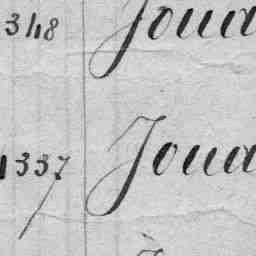 348 Joua
1337 Joua